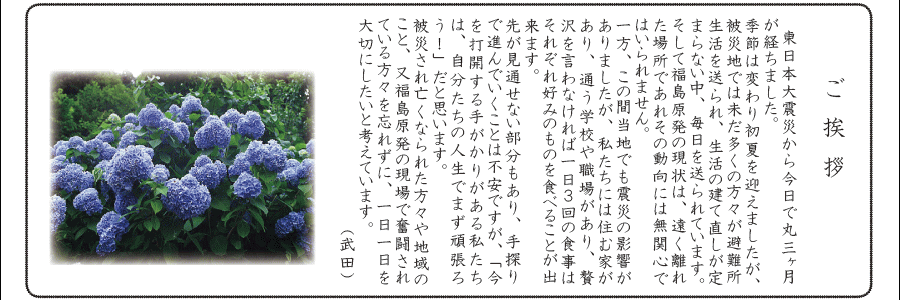 ご挨拶
東日本大震災から今日で丸三ヶ月
が経ちました。
季節は変わり初夏を迎えましたが、
被災地では未だ多くの方々が避難所
生活を送られ、生活の建て直しが定
まらない中、毎日を送られています。
そして福島原発の現状は、遠く離れ
た場所であれその動向には無関心で
はいられません。
一方、この間当地でも震災の影響が
ありましたが、私たちには住む家が
あり、通う学校や職場があり、贅
沢を言わなければ一日3回の食事は
それぞれ好みのものを食べることが出
来ます。
先が見通せない部分もあり、手探り
で進んでいくことは不安ですが、「今
を打開する手がかりがある私たち
は、自分たちの人生でまず頑張ろ
う！」だと思います。
被災され亡くなられた方々や地域の
こと、又福島原発の現場で奮闘され
ている方々を忘れずに、一日一日を
大切にしたいと考えています。
（武田）